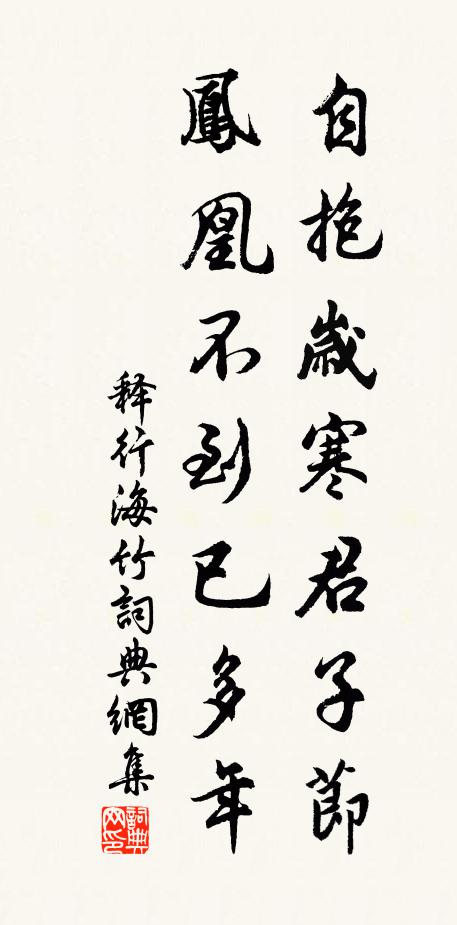 自抱歲寒君子節
鳳凰不到已多年
释行海竹詞典網集
詞典网印